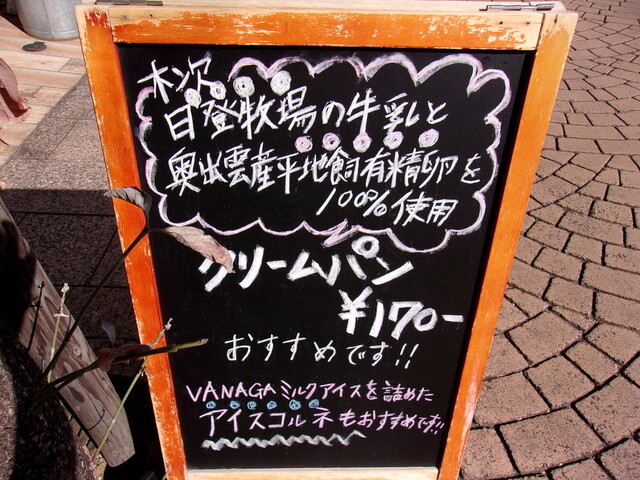 木次
日登牧場の牛乳と
奥出雲産平地飼有精卵を
100%使用
クリームパン
¥170-
おすすめです!!
VANAGAミルクアイスを詰めた
アイスコルネもおすすめです!!